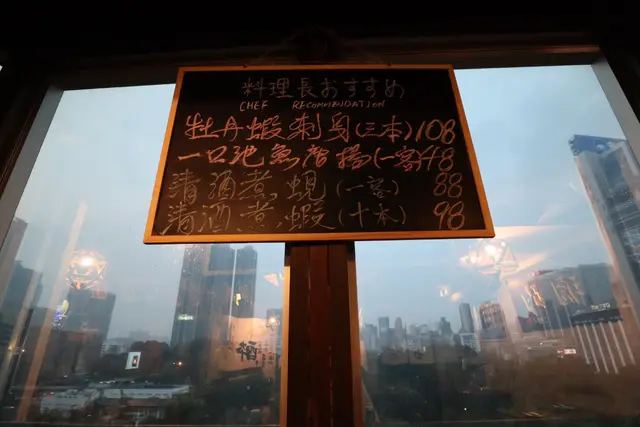 料理長おすすめ
CHEF RECOMMENDATION
牡丹蝦刺身(三本) 108
一口池魚唐揚(一客) 48
清酒煮蜆(一客) 88
清酒煮蝦(十本) 98